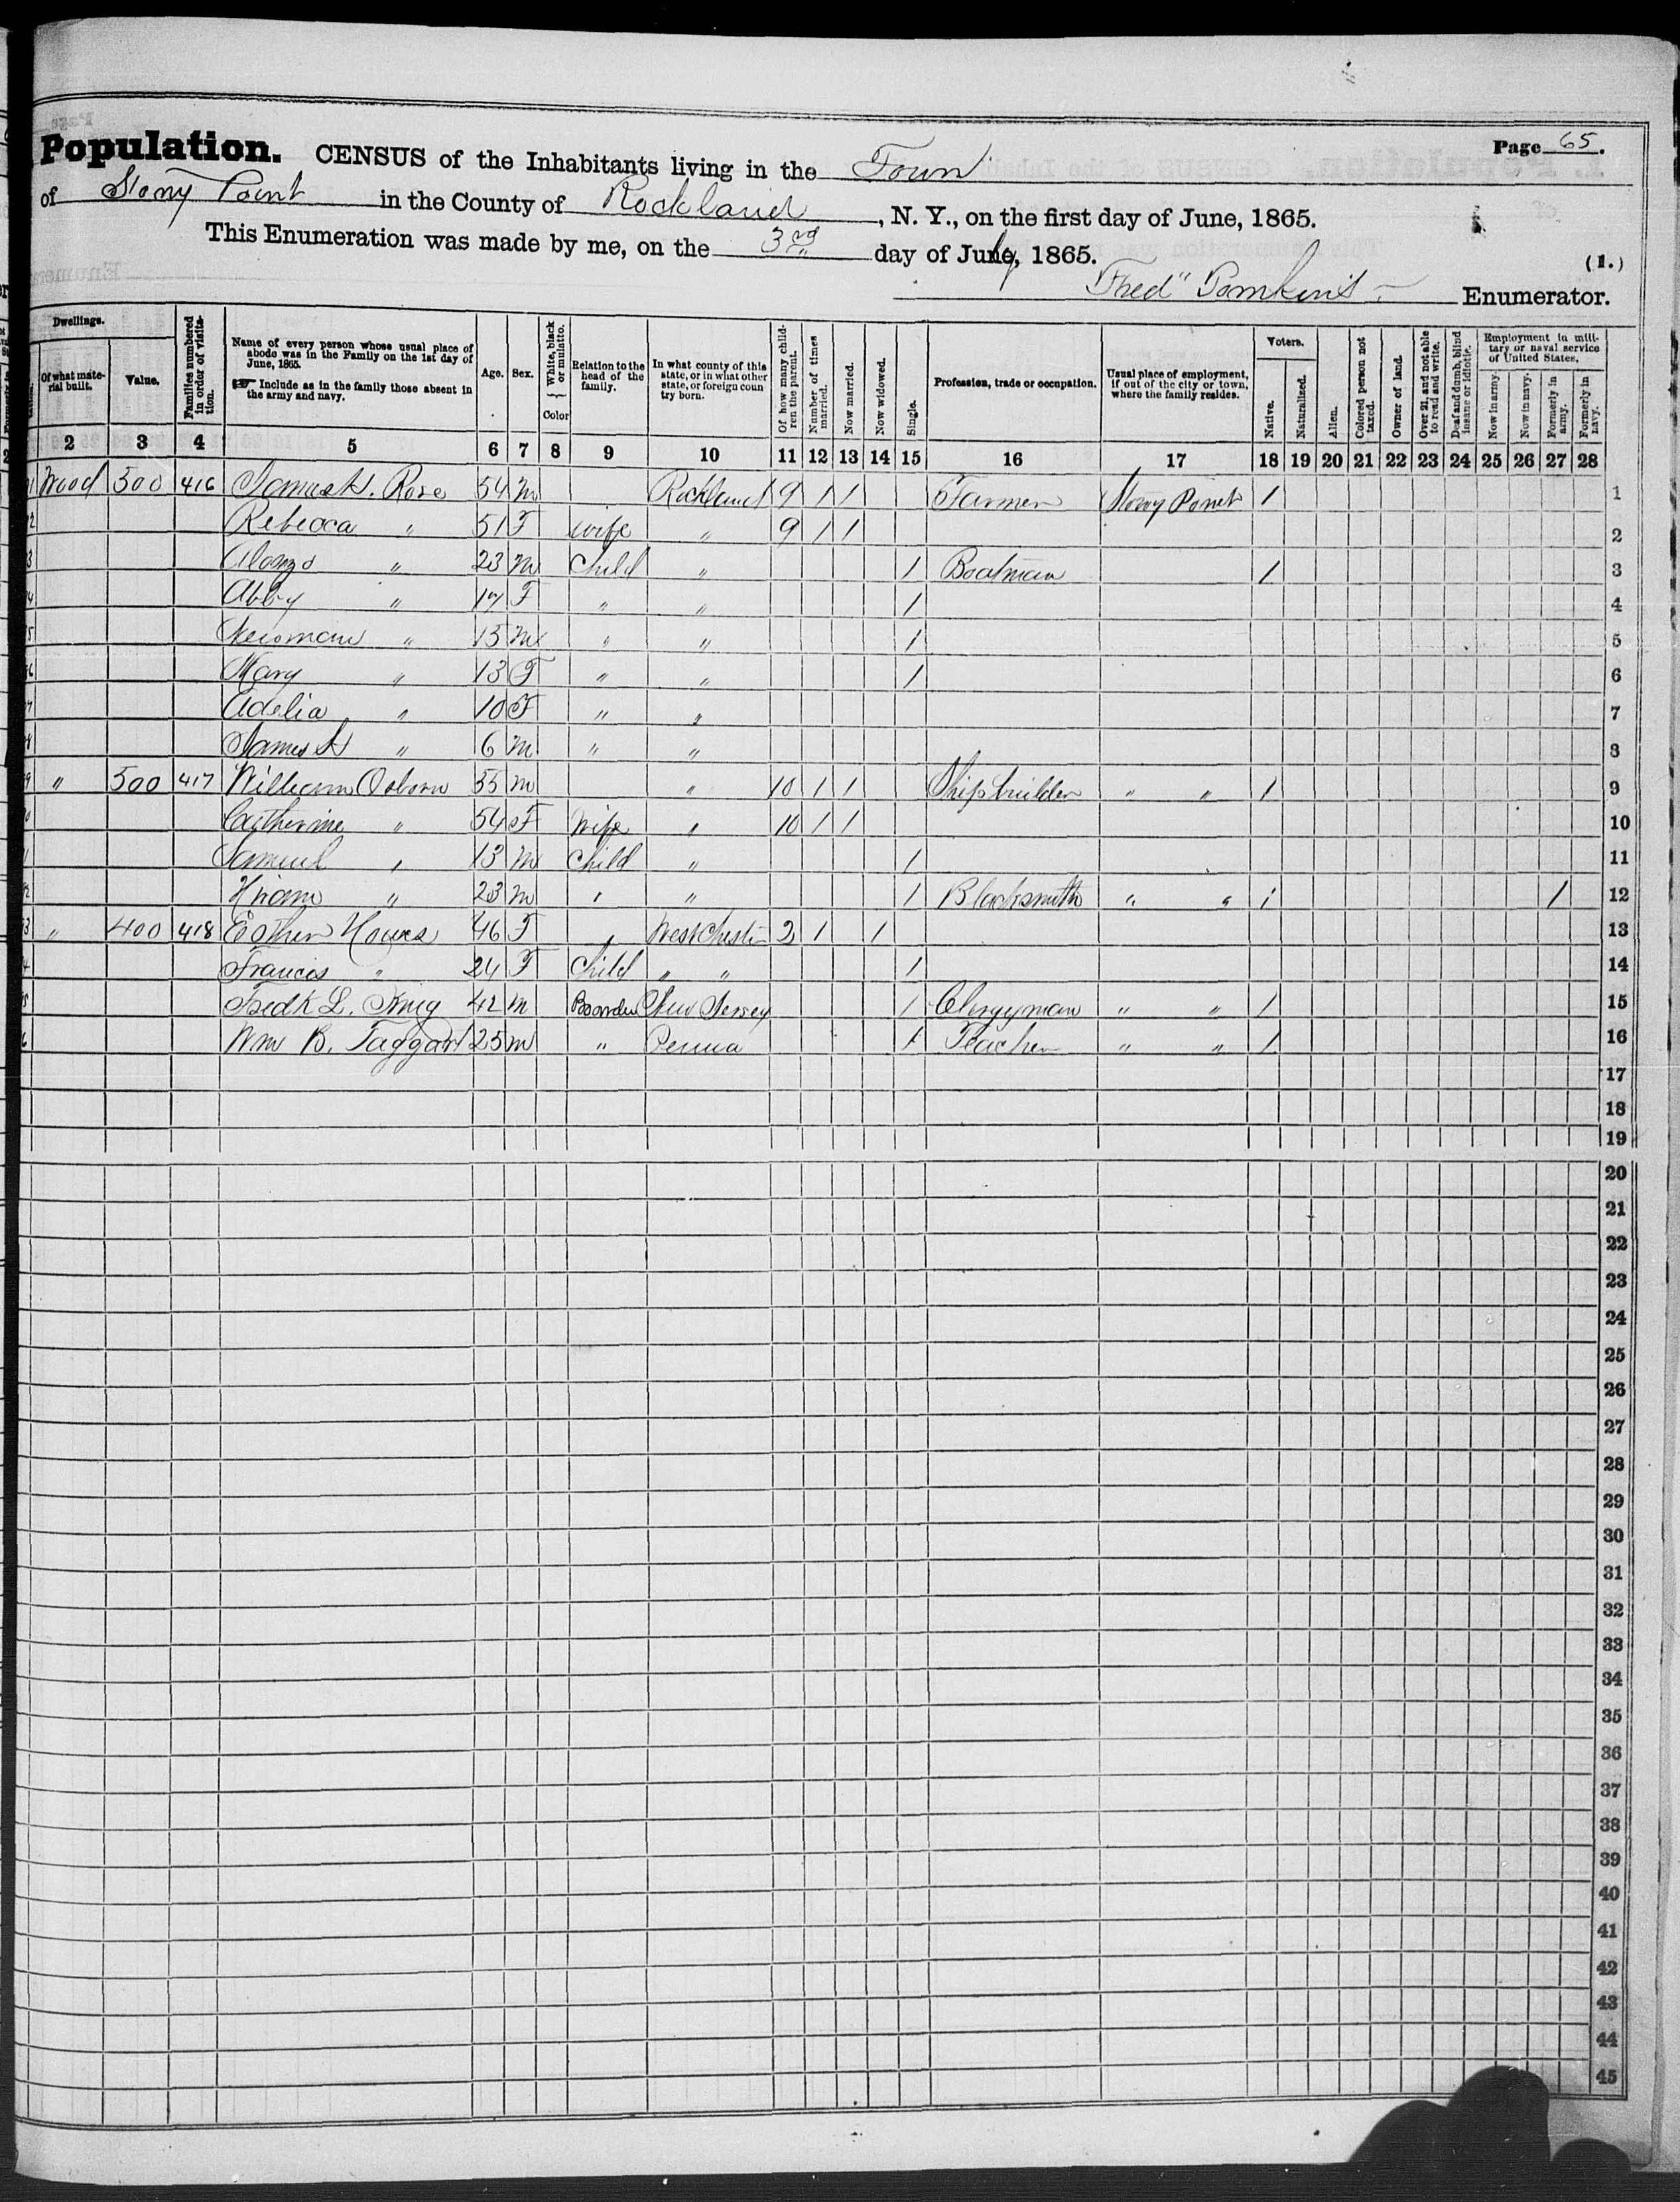 Page 65.
Population. CENSUS of the Inhabitants living in the Town
of Stony Point in the County of Rockland, N. Y., on the first day of June, 1865.
This Enumeration was made by me, on the 3rd day of July, 1865.
(1.)
Fred" Tomkins Enumerator.
Dwellings.
Of what material built.
Value.
Families numbered in order of visitation.
Name of every person whose usual place of abode was in the Family on the 1st day of June, 1865.
Include as in the family those absent in the army and navy.
Age.
Sex.
White, black or mulatto.
Color
Relation to the head of the family.
In what county of this state, or in what other state, or foreign country born.
Of how many children the parent.
Number of times married.
Now married.
Now widowed.
Single.
Profession, trade or occupation.
Usual place of employment, if out of the city or town, where the family resides.
Voters.
Native.
Naturalized.
Alien.
Colored person not taxed.
Owner of land.
Over 21, and not able to read and write.
Deaf and dumb, blind insane or idiotic.
Employment in military or naval service of United States.
Now in army.
Now in navy.
Formerly in army.
Formerly in navy.
2 3 4 5 6 7 8 9 10 11 12 13 14 15 16 17 18 19 20 21 22 23 24 25 26 27 28
Wood 500 416 James H. Rose 54 M Rockland 9 1 1 Farmer Stony Point 1 1
Rebecca " 51 F Wife " 9 1 1 2
Alonzo " 23 M Child " 1 Boatman 1 3
Abby " 17 F " " 1 4
Newman " 15 M " " 1 5
Mary " 13 F " " 1 6
Adelia " 10 F " " 7
James H " 6 M " " 8
" 500 417 William Osborn 55 M " 10 1 1 Ship builder " " 1 9
Catherine " 54 F Wife " 10 1 1 10
Samuel " 13 M Child " 1 11
Hiram " 23 M " " 1 Blacksmith " " 1 1 12
" 400 418 Esther Hawes 46 F Westchester 2 1 1 13
Francis " 24 F Child " " 1 14
Fredk L. King 42 M Boarder New Jersey 1 Clergyman " " 1 15
Wm B. Taggart 25 M " Penna 1 Teacher " " 1 16
17
18
19
20
21
22
23
24
25
26
27
28
29
30
31
32
33
34
35
36
37
38
39
40
41
42
43
44
45